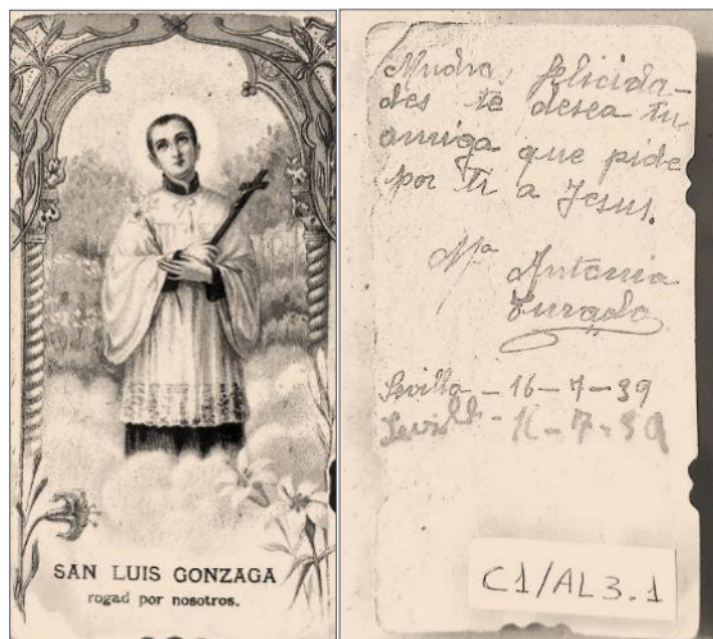 SAN LUIS GONZAGA
rogad por nosotros.
Mucha felicida-
des te desea tu
amiga que pide
por ti a Jesus.
Mª Antonia
Jurado
Sevilla - 16 - 7 - 39
Sevilla - 16 - 7 - 39
C1/AL3.1